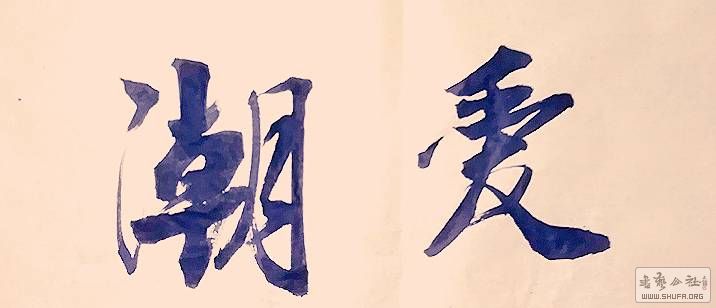 爱潮
书艺公社
WWW.SHUFA.ORG